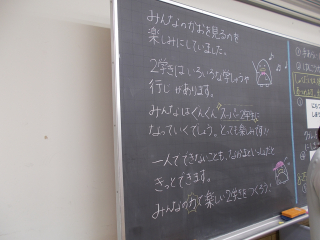 みんなのかおを見るのを
楽しみにしていました。
2学きはいろいろな学しゅうや
行じがあります。
みんなはぐんぐん"スーパー2年生"に
なっていくでしょう。とっても楽しみです!!
一人でできないことも、なかまといっしょだと
きっとできます。
みんなの力で楽しい2学きをつくろう!